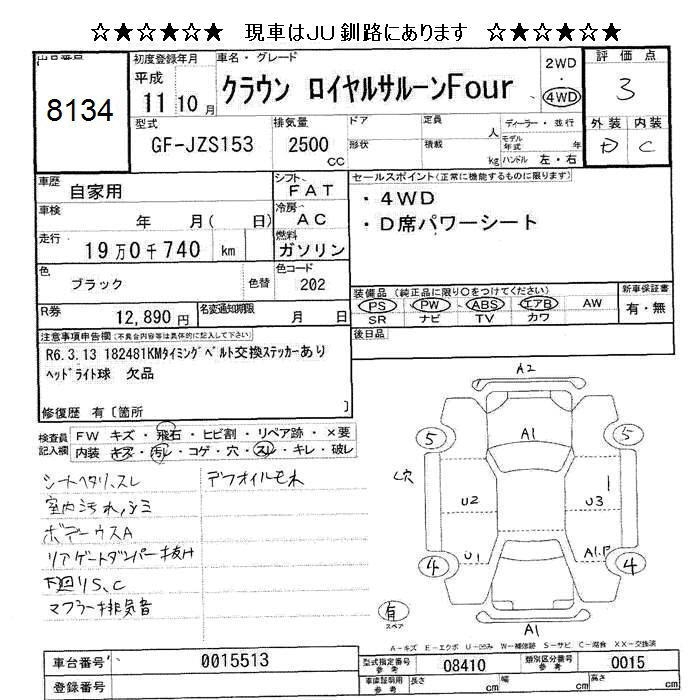 ☆★☆★☆★ 現車はJU釧路にあります ☆★☆★☆★
8134
初度登録年月
平成
11年10月
車名・グレード
クラウン ロイヤルサルーンFour
2WD
・
4WD
評価点
3
型式
GF-JZS153
排気量
2500
cc
ドア
形状
定員
人
積載
kg
ディーラー・並行
モデル年式 年
ハンドル 左・右
外装 内装
D C
車歴
自家用
シフト
FAT
車検
年 月( 日)
冷房
AC
走行
19万0千740 km
燃料
ガソリン
色
ブラック
色替
色コード
202
R券
12,890円
名変通知期限
月 日
セールスポイント(正常に機能するものに限ります)
・4WD
・D席パワーシート
装備品 (純正品に限り〇をつけてください)
PS PW ABS エアB AW
SR ナビ TV カワ
新車保証書
有・無
後日品
注意事項申告欄(不具合内容等は具体的に記入して下さい)
R6.3.13 182481KMタイミングベルト交換ステッカーあり
ヘッドライト球 欠品
修復歴 有〔箇所 〕
検査員
記入欄
FW キズ・飛石・ヒビ割・リペア跡・×要
内装 キズ・汚レ・コゲ・穴・スレ・キレ・破レ
シートヘタリ、スレ
デフオイルモレ
室内汚れ,シミ
ボデーウスA
リアゲートダンパー抜け
下回りS、C
マフラー排気音
A2
5
5
A1
L穴
U2
U3
U1
A1.P
4
4
有
スペア
A1
A-キズ E-エクボ U-凹み W-補修跡 S-サビ C-腐食 XX-交換済
車台番号
0015513
型式指定番号
参考
08410
類別区分番号
参考
0015
登録番号
車庫証明用
参考
長さ
cm
幅
cm
高さ
cm